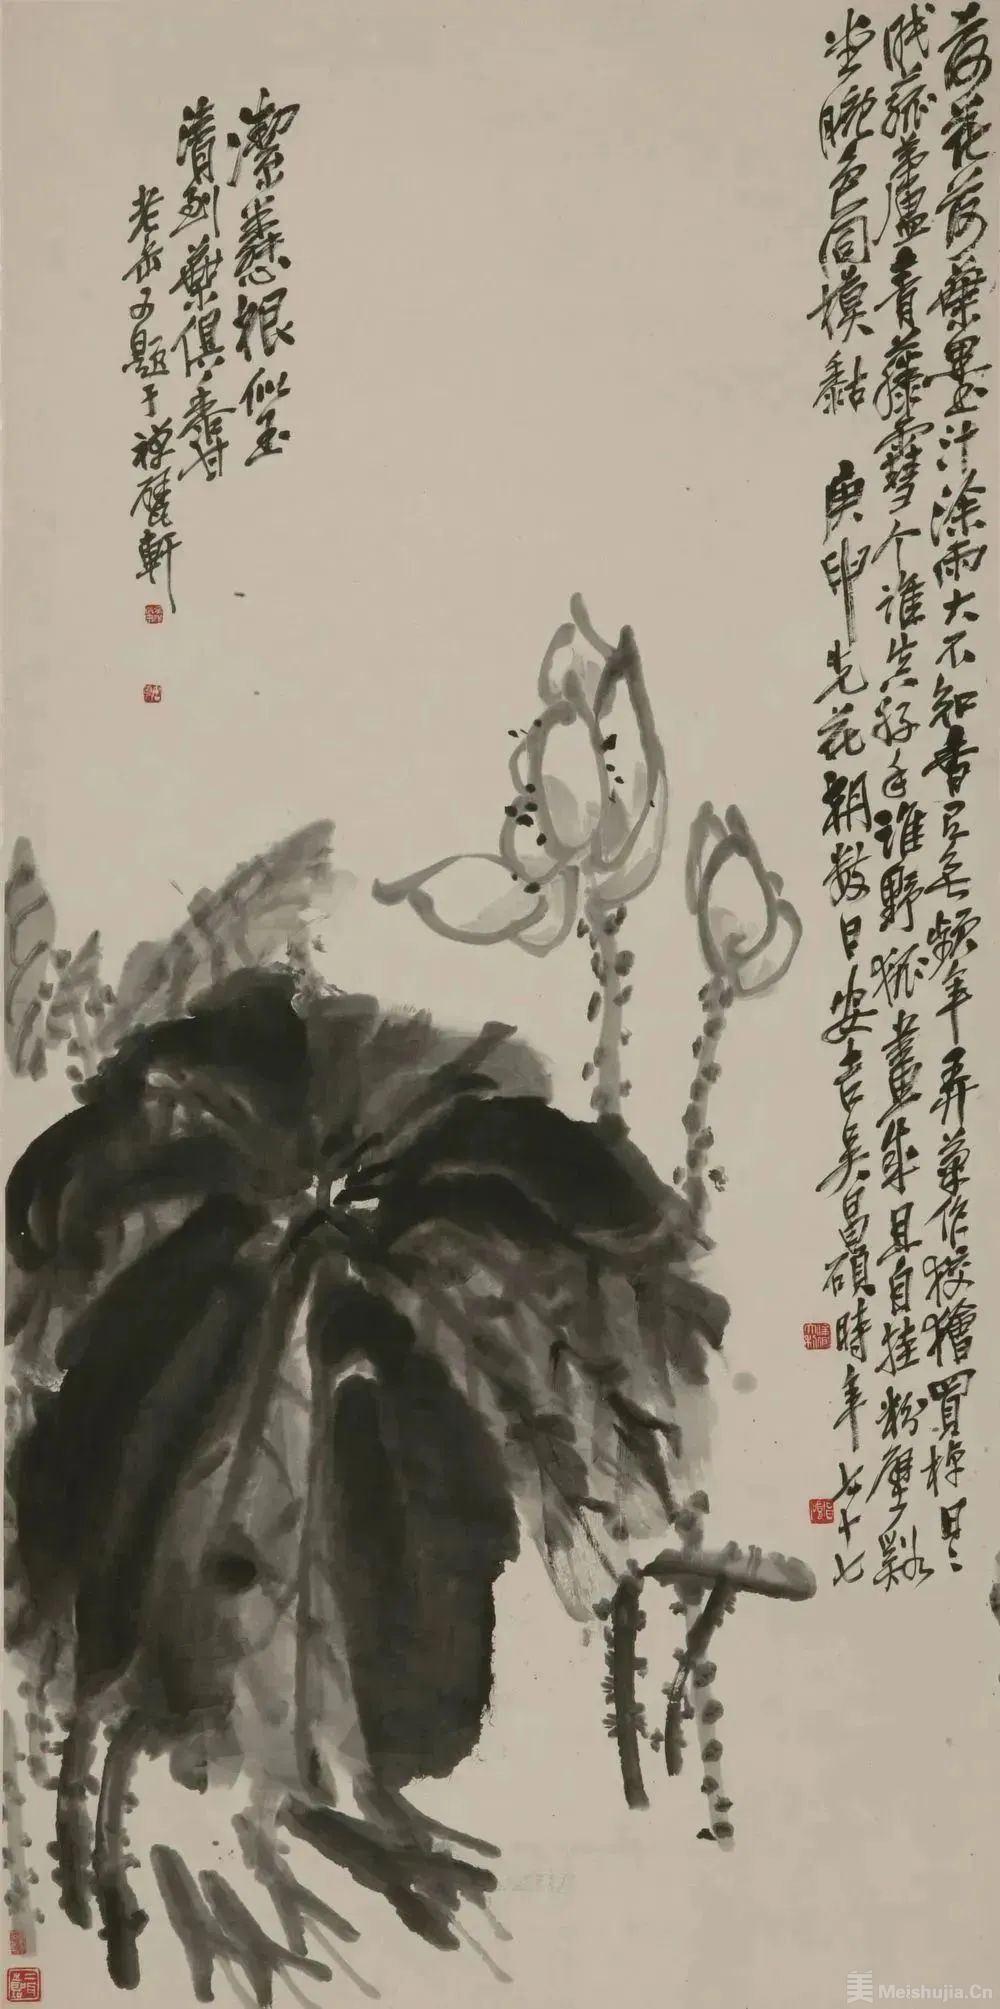 荷花荷葉墨汁涂雨大不知香已無頻年弄菊作狡獪買棹日日
眠菰蘆青藤雪个誰真好手誰野狐畫成且自挂粉壁溪
坐晚色同模黏
庚申先花朝數日安吉吳昌碩時年七十七
潔慧根似玉
清到葉俱香
老缶又題于禪甓軒
美 Meishujia.Cn